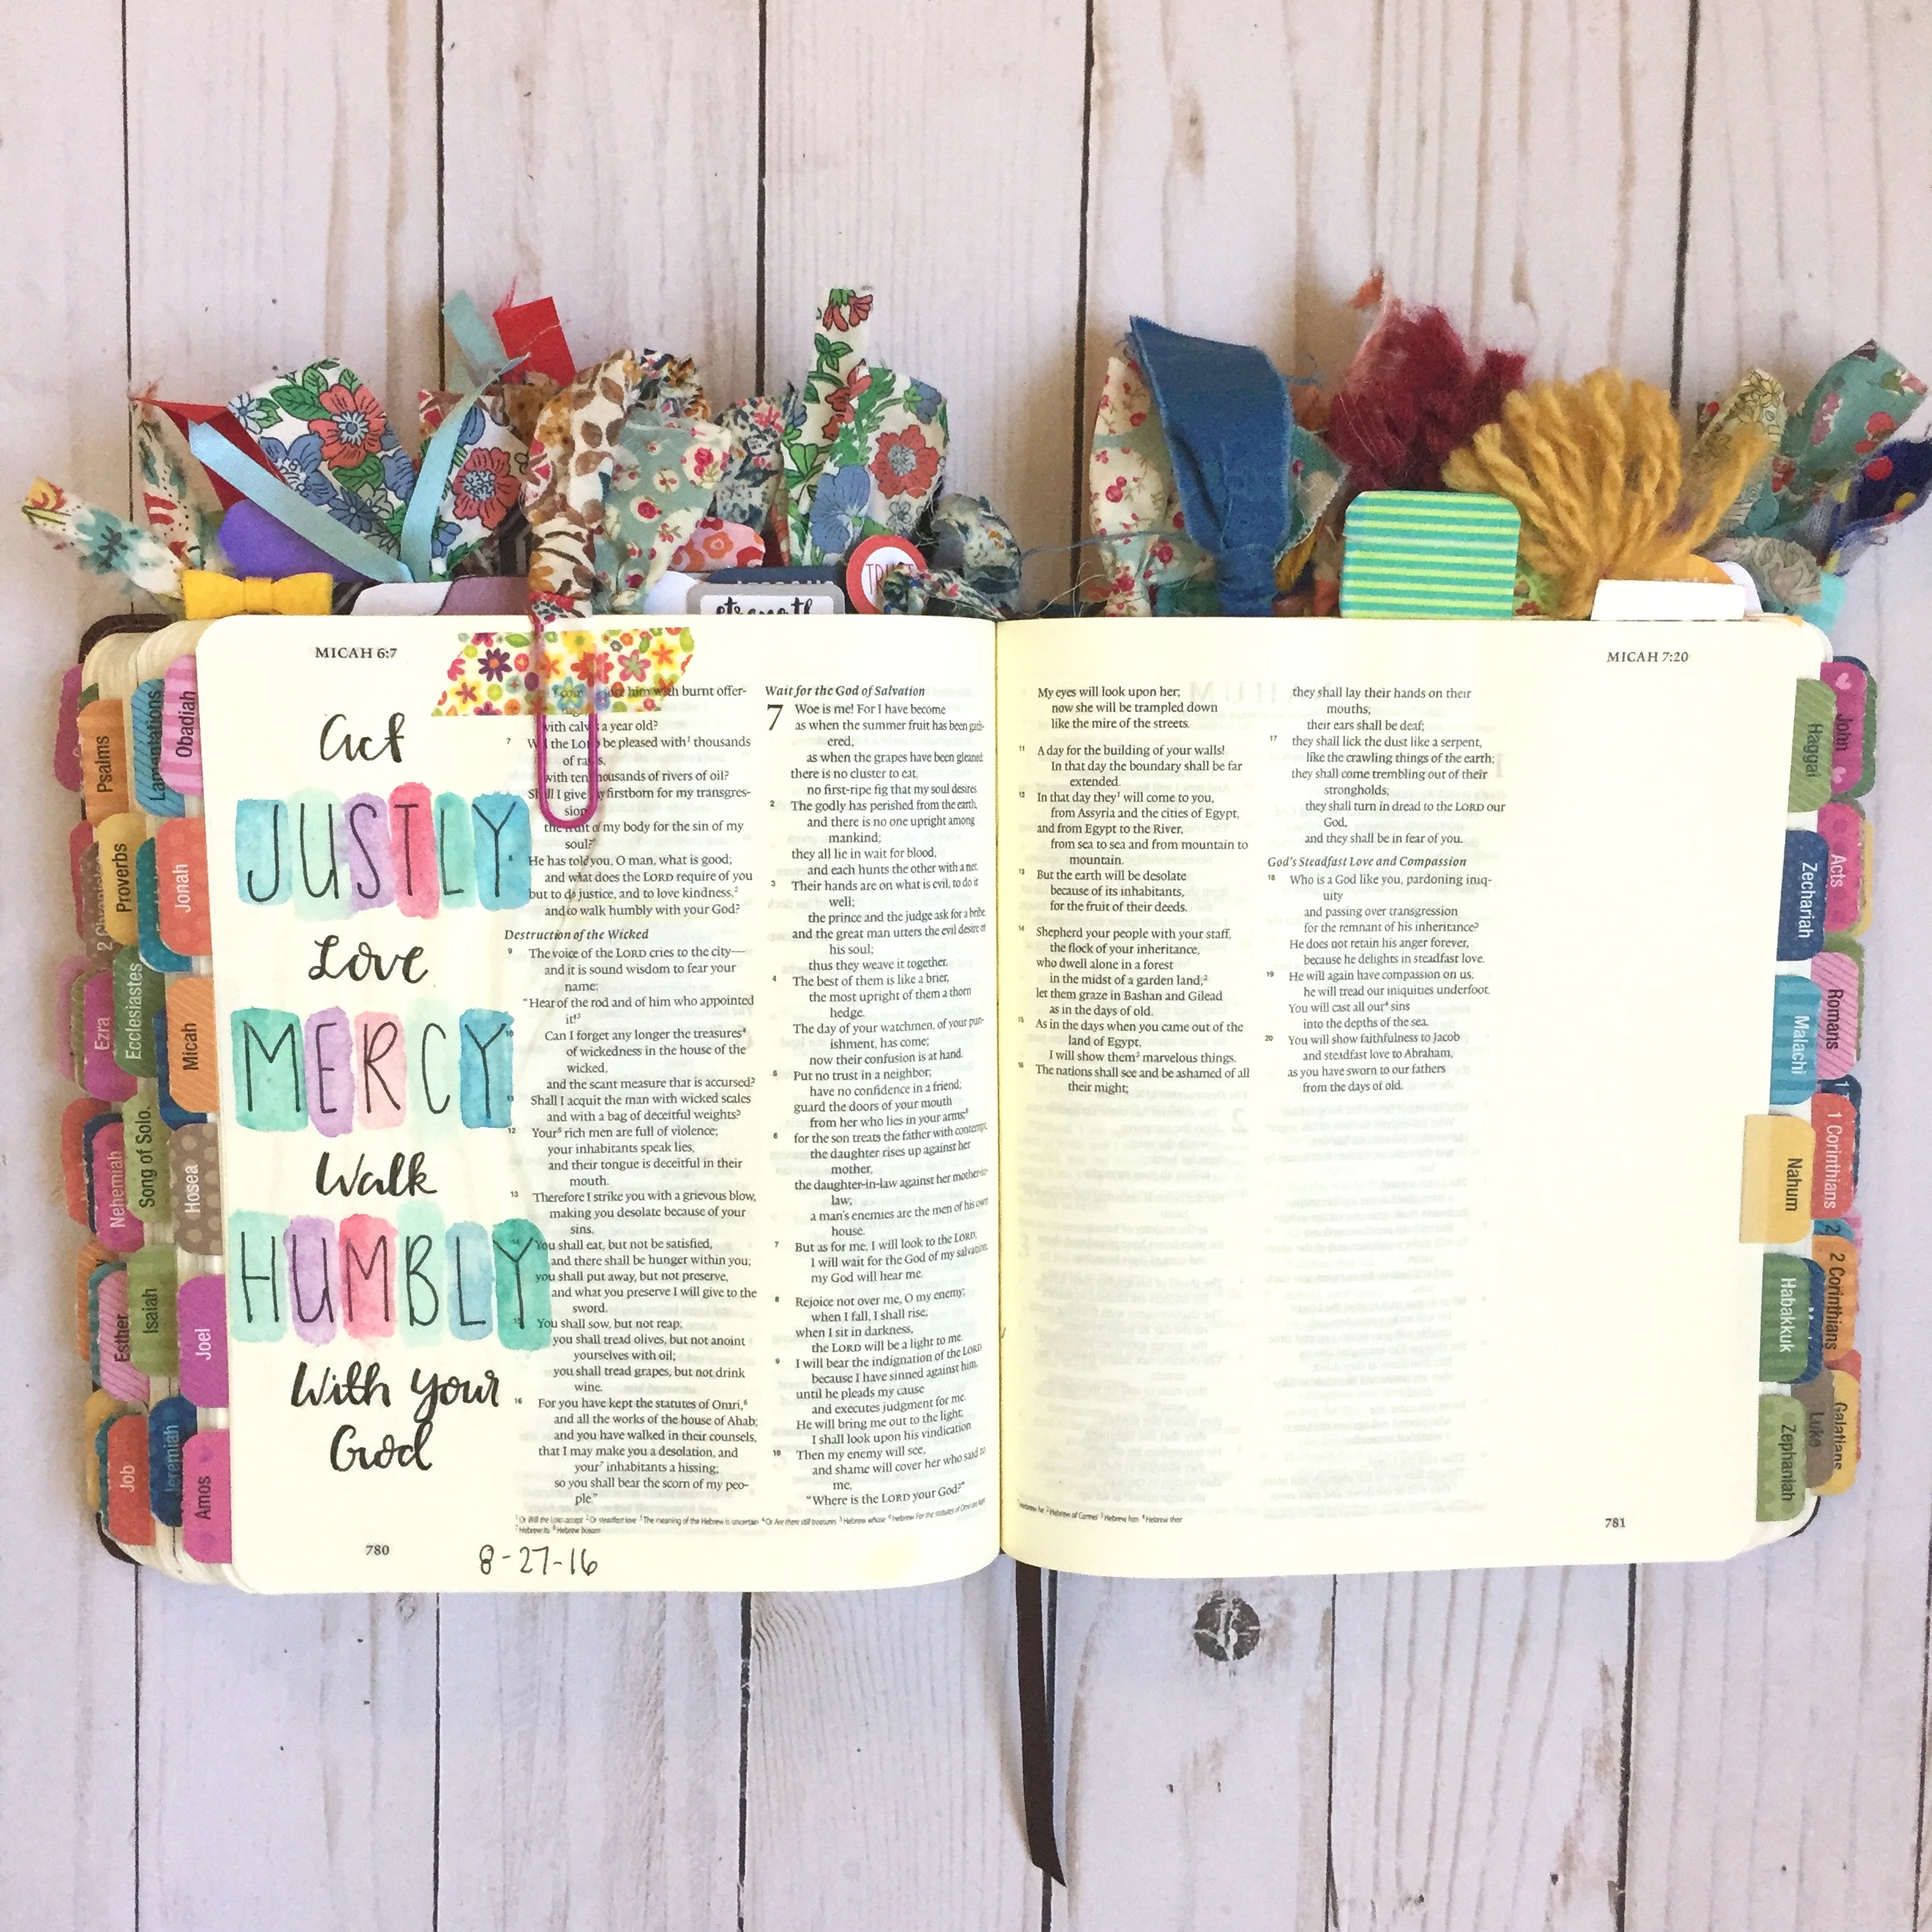 TRUST
strength
Psalms
Lamentations
Obadiah
Proverbs
Jonah
Ezra
Ecclesiastes
Micah
Nehemiah
Song of Solo.
Hosea
Esther
Isaiah
Joel
Job
Jeremiah
Amos
MICAH 6:7
Act
JUSTLY
Love
MERCY
Walk
HUMBLY
With your
God
him with burnt offer-
with calves a year old?
7 Will the LORD be pleased with¹ thousands
of rams,
with ten thousands of rivers of oil?
Shall I give my firstborn for my transgres-
sion,
the fruit of my body for the sin of my
soul?"
8 He has told you, O man, what is good;
and what does the LORD require of you
but to do justice, and to love kindness,²
and to walk humbly with your God?
Destruction of the Wicked
9 The voice of the LORD cries to the city—
and it is sound wisdom to fear your
name:
"Hear of the rod and of him who appointed
it!³
10 Can I forget any longer the treasures⁴
of wickedness in the house of the
wicked,
and the scant measure that is accursed?
11 Shall I acquit the man with wicked scales
and with a bag of deceitful weights?
12 Your⁵ rich men are full of violence;
your inhabitants speak lies,
and their tongue is deceitful in their
mouth.
13 Therefore I strike you with a grievous blow,
making you desolate because of your
sins.
14 You shall eat, but not be satisfied,
and there shall be hunger within you;
you shall put away, but not preserve,
and what you preserve I will give to the
sword.
15 You shall sow, but not reap;
you shall tread olives, but not anoint
yourselves with oil;
you shall tread grapes, but not drink
wine.
16 For you have kept the statutes of Omri,⁶
and all the works of the house of Ahab;
and you have walked in their counsels,
that I may make you a desolation, and
your⁷ inhabitants a hissing;
so you shall bear the scorn of my peo-
ple."
Wait for the God of Salvation
7 Woe is me! For I have become
as when the summer fruit has been gath-
ered,
as when the grapes have been gleaned:
there is no cluster to eat,
no first-ripe fig that my soul desires.
2 The godly has perished from the earth,
and there is no one upright among
mankind;
they all lie in wait for blood,
and each hunts the other with a net.
3 Their hands are on what is evil, to do it
well;
the prince and the judge ask for a bribe,
and the great man utters the evil desire of
his soul;
thus they weave it together.
4 The best of them is like a brier,
the most upright of them a thorn
hedge.
The day of your watchmen, of your pun-
ishment, has come;
now their confusion is at hand.
5 Put no trust in a neighbor;
have no confidence in a friend;
guard the doors of your mouth
from her who lies in your arms;⁸
6 for the son treats the father with contempt,
the daughter rises up against her
mother,
the daughter-in-law against her mother-in-
law;
a man's enemies are the men of his own
house.
7 But as for me, I will look to the LORD;
I will wait for the God of my salvation;
my God will hear me.
8 Rejoice not over me, O my enemy;
when I fall, I shall rise;
when I sit in darkness,
the LORD will be a light to me.
9 I will bear the indignation of the LORD
because I have sinned against him,
until he pleads my cause
and executes judgment for me.
He will bring me out to the light;
I shall look upon his vindication.
10 Then my enemy will see,
and shame will cover her who said to
me,
"Where is the LORD your God?"
¹ Or Will the LORD accept ² Or steadfast love ³ The meaning of the Hebrew is uncertain ⁴ Or Are there still treasures ⁵ Hebrew whose ⁶ Hebrew For the statutes of Omri are kept
⁷ Hebrew its ⁸ Hebrew bosom
780
8-27-16
MICAH 7:20
My eyes will look upon her;
now she will be trampled down
like the mire of the streets.
11 A day for the building of your walls!
In that day the boundary shall be far
extended.
12 In that day they¹ will come to you,
from Assyria and the cities of Egypt,
and from Egypt to the River,
from sea to sea and from mountain to
mountain.
13 But the earth will be desolate
because of its inhabitants,
for the fruit of their deeds.
14 Shepherd your people with your staff,
the flock of your inheritance,
who dwell alone in a forest
in the midst of a garden land;²
let them graze in Bashan and Gilead
as in the days of old.
15 As in the days when you came out of the
land of Egypt,
I will show them³ marvelous things.
16 The nations shall see and be ashamed of all
their might;
they shall lay their hands on their
mouths;
their ears shall be deaf;
17 they shall lick the dust like a serpent,
like the crawling things of the earth;
they shall come trembling out of their
strongholds;
they shall turn in dread to the LORD our
God,
and they shall be in fear of you.
God's Steadfast Love and Compassion
18 Who is a God like you, pardoning iniq-
uity
and passing over transgression
for the remnant of his inheritance?
He does not retain his anger forever,
because he delights in steadfast love.
19 He will again have compassion on us;
he will tread our iniquities underfoot.
You will cast all our⁴ sins
into the depths of the sea.
20 You will show faithfulness to Jacob
and steadfast love to Abraham,
as you have sworn to our fathers
from the days of old.
¹ Hebrew he ² Hebrew of Carmel ³ Hebrew him ⁴ Hebrew their
781
Haggai
John
Zechariah
Acts
Malachi
Romans
Nahum
1 Corinthians
Habakkuk
2 Corinthians
Zephaniah
Luke
Galatians